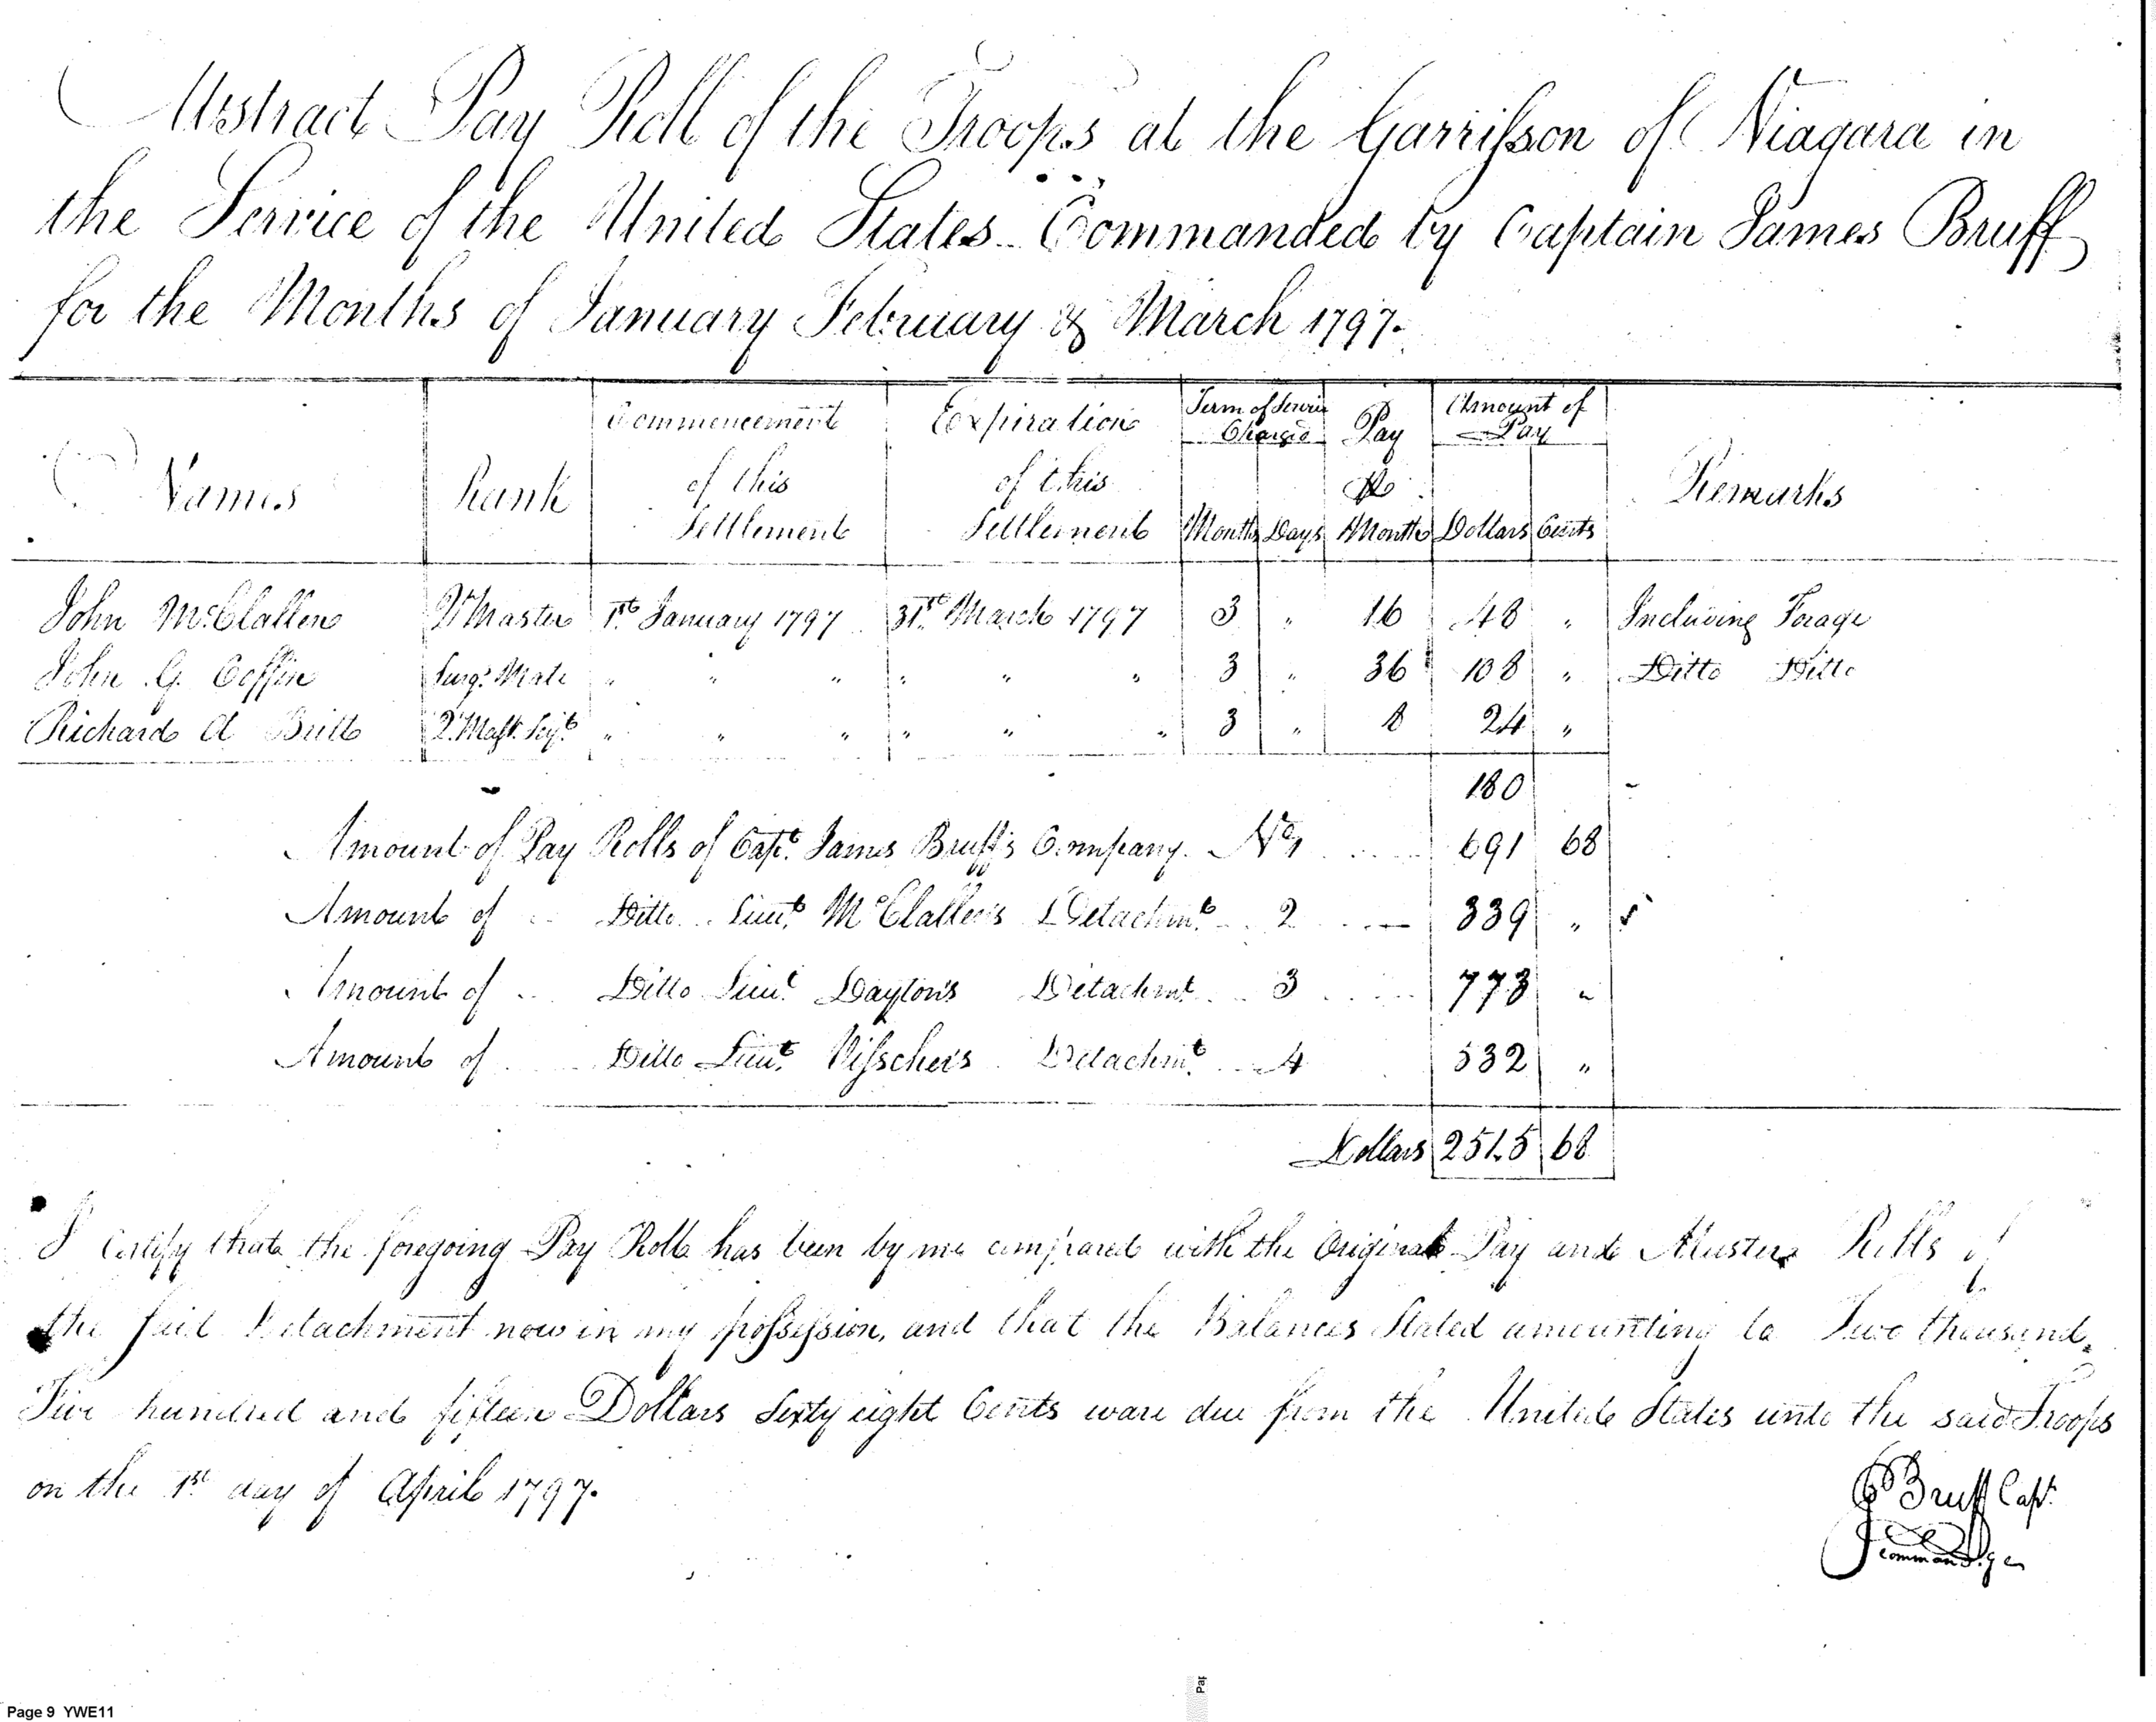 Abstract Pay Roll of the Troops at the Garrisson of Niagara in
the Service of the United States Commanded by Captain James Bruff
for the Months of January February & March 1797.
Names Rank Commencement of this Settlement Expiration of this Settlement Term of Service Charged Months Days Pay ⅌ Month Amount of Pay Dollars Cents Remarks
John McClallen Qr Master 1st January 1797 31st March 1797 3 " 16 48 " Including Forage
John G. Coffin Surgs Mate " " " " " " 3 " 36 108 " Ditto Ditto
Richard A Britt Q. Mast. Sejt " " " " " " 3 " 8 24 "
180
Amount of Pay Rolls of Capt. James Bruff's Company. No 1 691 68
Amount of Ditto Lieut. McClallen's Detachmt. 2 339 "
Amount of Ditto Lieut. Dayton's Detachmt. 3 773 "
Amount of Ditto Lieut. Visschers Detachmt. 4 532 "
Dollars 2515 68
I Certify that the foregoing Pay Roll has been by me compared with the Original Pay and Muster Rolls of
the said Detachment now in my possession, and that the Balances Stated amounting to Two thousand,
Five hundred and fifteen Dollars Sixty eight Cents ware due from the United States unto the said Troops
on the 1st day of April 1797.
J Bruff Capt.
Commandg
Page 9 YWE11